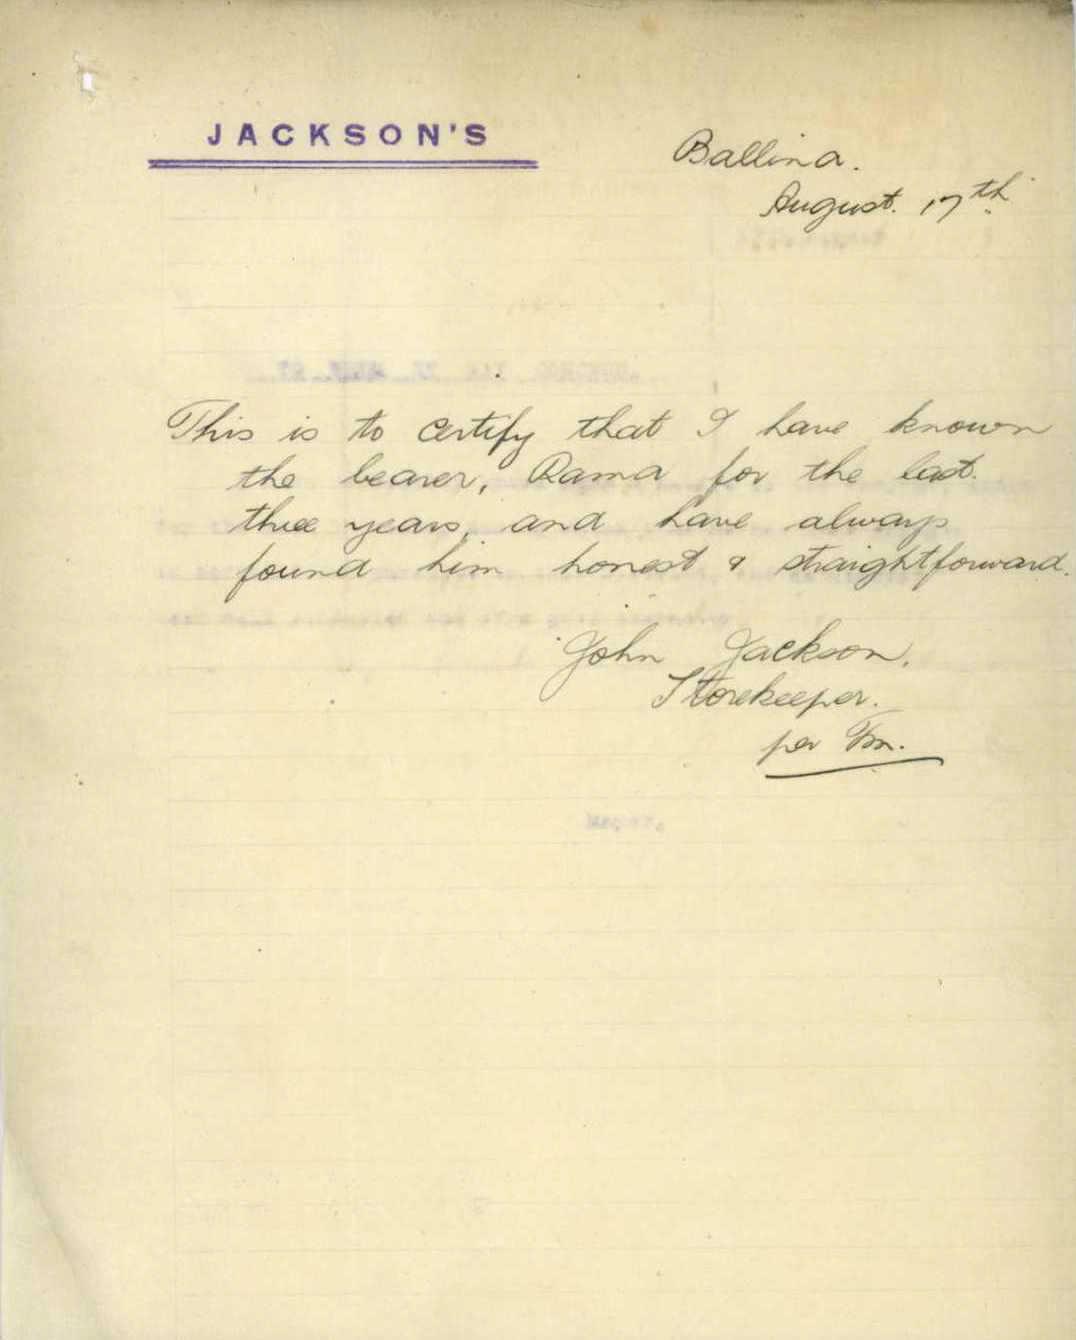 JACKSON'S
Ballina.
August. 17th
This is to certify that I have known
the bearer, Rama for the last.
three years, and have always
found him honest & straightforward.
John Jackson.
Storekeeper.
per
Mayor.